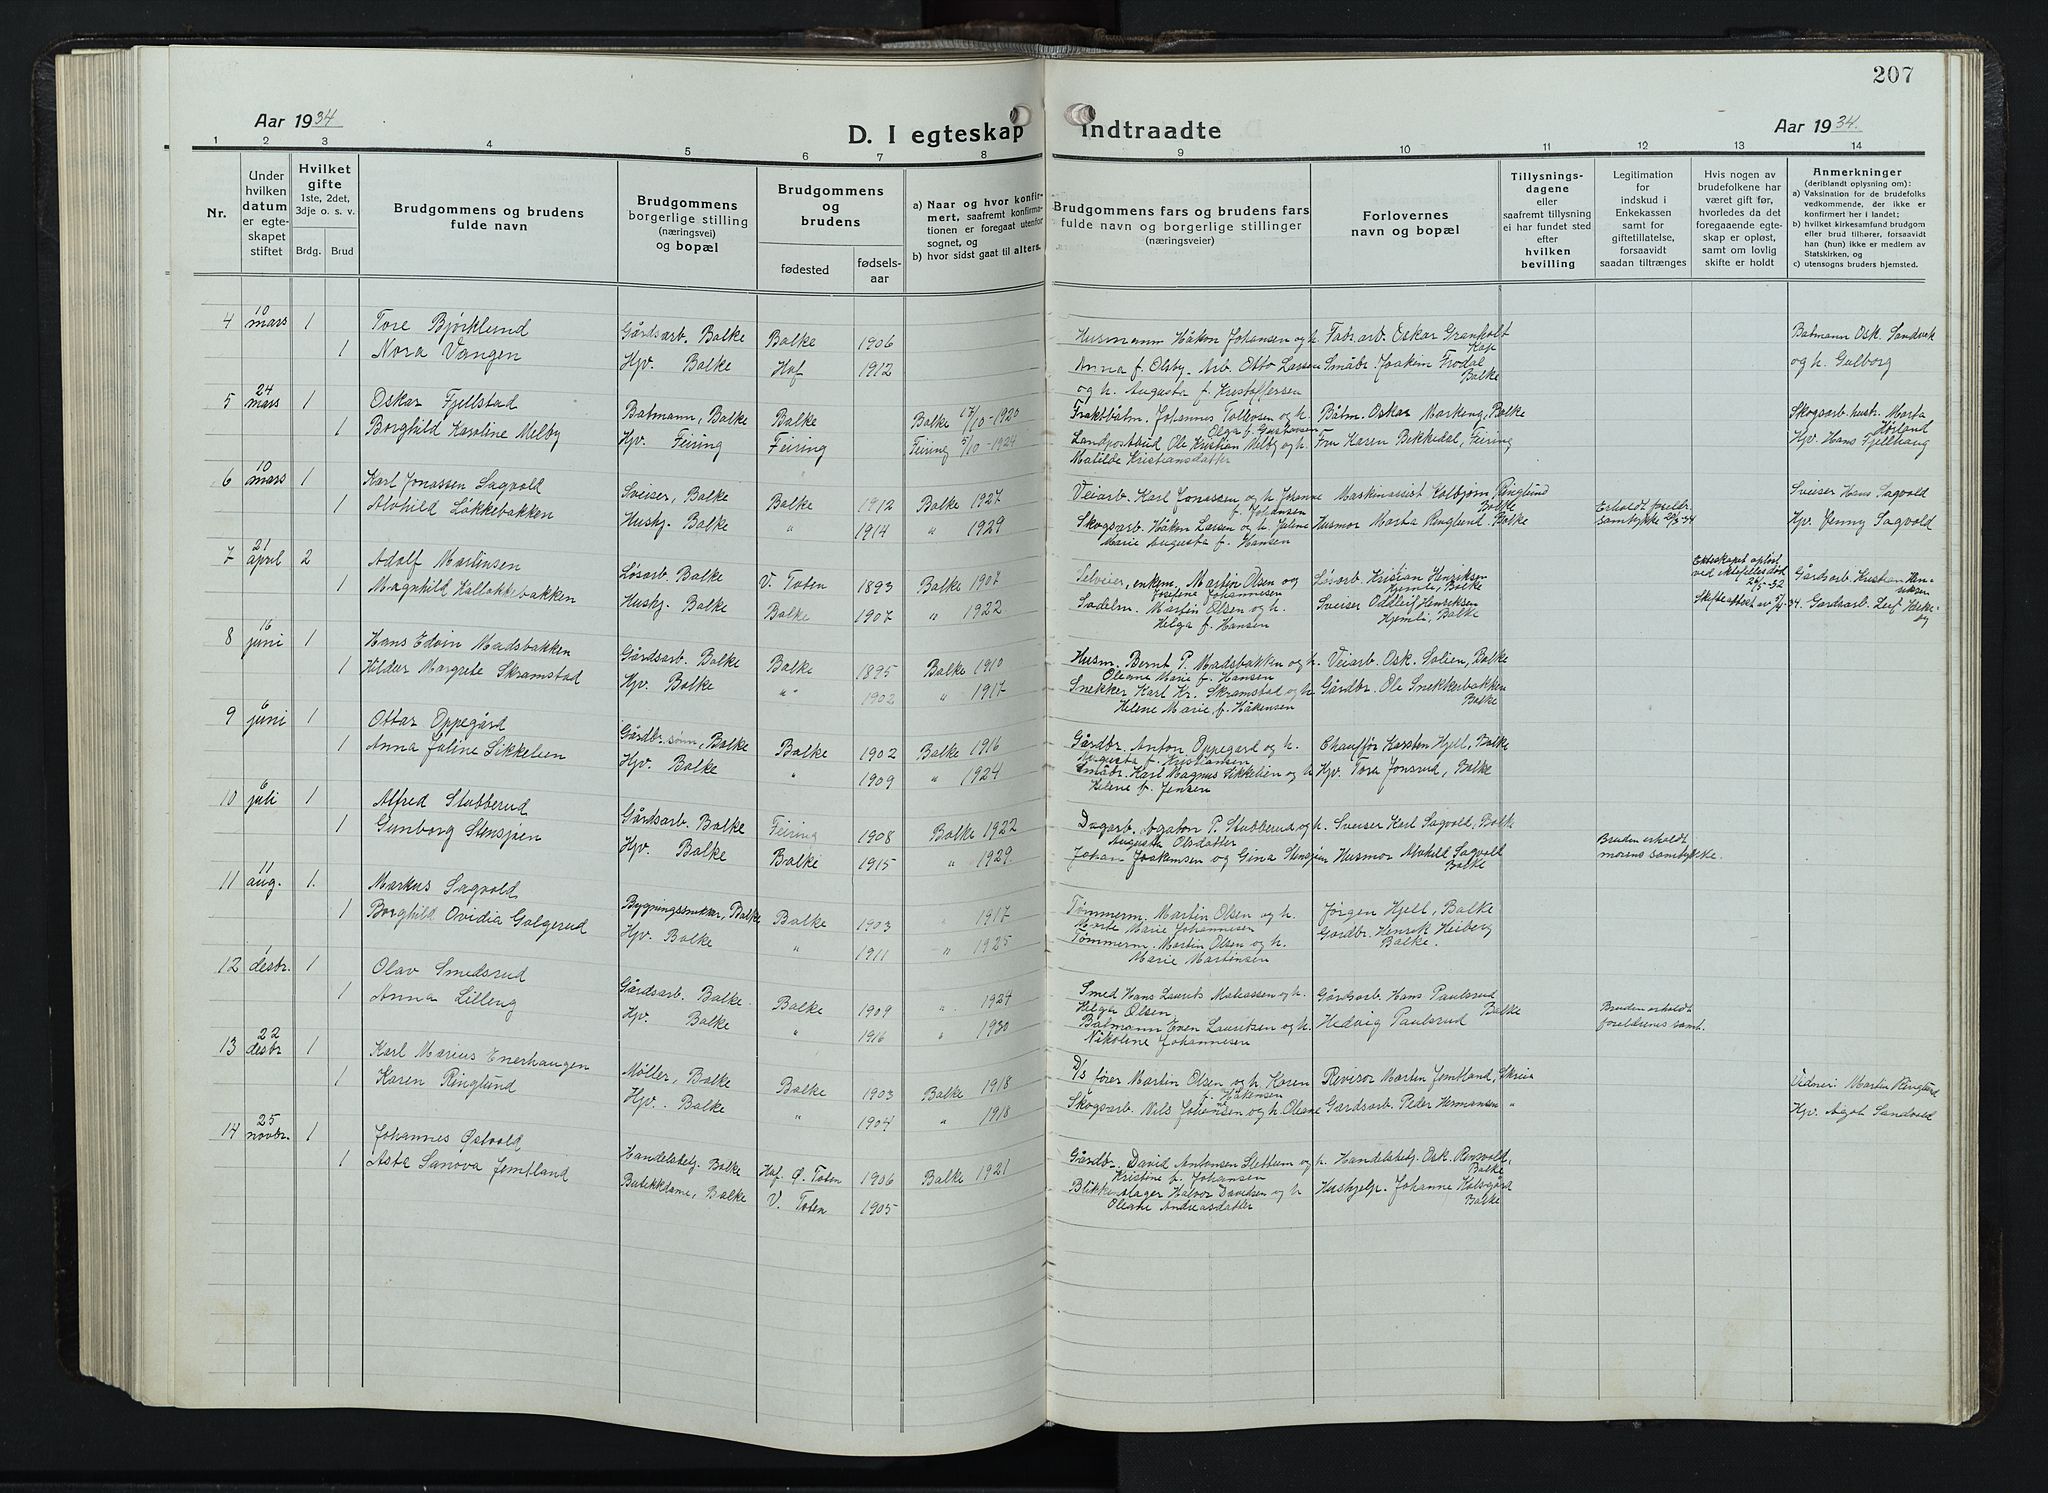 207
Aar 1934
D. I egteskap indtraadte
Aar 1934.
1 2 3 4 5 6 7 8 9 10 11 12 13 14
Nr.
Under hvilken datum er egteskapet stiftet
Hvilket gifte 1ste, 2det, 3dje o. s. v.
Brdg. Brud
Brudgommens og brudens fulde navn
Brudgommens borgerlige stilling (næringsvei) og bopæl
Brudgommens og brudens
fødested
fødselsaar
a) Naar og hvor konfirmert, saafremt konfirmationen er foregaat utenfor sognet, og
b) hvor sidst gaat til alters.
Brudgommens fars og brudens fars fulde navn og borgerlige stillinger (næringsveier)
Forlovernes navn og bopæl
Tillysningsdagene eller saafremt tillysning ei har fundet sted efter hvilken bevilling
Legitimation for indskud i Enkekassen samt for giftetillatelse, forsaavidt saadan tiltrænges
Hvis nogen av brudefolkene har været gift før, hvorledes da det foregaaende egteskap er opløst, samt om lovlig skifte er holdt
Anmerkninger (deriblandt oplysning om):
a) Vaksination for de brudefolks vedkommende, der ikke er konfirmert her i landet;
b) hvilket kirkesamfund brudgom eller brud tilhører, forsaavidt han (hun) ikke er medlem av Statskirken, og
c) utensogns bruders hjemsted.
4 10 mars 1 Tore Bjørklund Gårdsarb. Balke Balke 1906 Husmann Håkon Johansen og h. Fabr.arb. Oskar Granholt Kap Batmann Osk. Sandvik
1 Nora Vangen Hjv. Balke Hof 1912 Anna f. Olsby. Arb. Otto Larsen Småbr. Joakim Frodal Balke og h. Galborg
og h. Augusta f. Kristoffersen
5 24 mars 1 Oskar Fjellstad Batmann, Balke Balke Balke 17/10-1920 Fraktbåtm. Johannes Tollevsen og h. Olga f. Gustavsen Båtm. Oskar Markeng, Balke Skogsarb. hust. Marta Hørland
1 Borghild Karoline Melby Hjv. Feiring Feiring Feiring 5/10-1924 Landpostbud Ole Kristian Melby og h. Fru Karen Bekkedal, Feiring Hjv. Hans Fjellhaug
Matilde Kristiansdatter
6 10 mars 1 Karl Jonassen Sagvold Sveiser, Balke Balke 1912 Balke 1927 Veiarb. Karl Jonassen og h. Johanne f. Johansen Maskinassist Kolbjørn Ringlund Balke Sveiser Hans Sagvold
1 Alvhild Løkkebakken Hushj. Balke " 1914 " 1929 Skogsarb. Håkon Larsen og h. Jaline Husmor Marta Ringlund Balke Erholdt foreldr. samtykke 20/3-34 Hjv. Jenny Sagvold
Marie Augusta f. Hansen
7 21 april 2 Adolf Martinsen Løsarb. Balke V. Toten 1893 Balke 1907 Selveier, enkem. Martin Olsen og Josefine Johannesen Løsarb. Kristian Henriksen Hjemli, Balke Ekteskapet opløst ved ektefelles død 26/5-32 Gårdsarb. Kristian Henriksen
1 Magnhild Kallakkebakken Hushj. Balke Balke 1907 " 1922 Sadelm. Martin Olsen og h. Sveiser Oddleif Henriksen Skifteattest av 5/4-34. Gardsarb. Leif
Helga f. Hansen Hjemli, Balke
8 16 juni 1 Hans Edvin Madsbakken Gårdsarb. Balke Balke 1895 Balke 1910 Husm. Bernt P. Madsbakken og h. Oleane Marie f. Hansen Veiarb. Osk. Solien, Balke
1 Hildur Margrete Skramstad Hjv. Balke " 1902 " 1917 Snekker Karl Kr. Skramstad og h. Gårdbr. Ole Snekkerbakken
Helene Marie f. Håkensen Balke
9 6 juni 1 Ottar Oppegård Gårdbr.sønn, Balke Balke 1902 Balke 1916 Gårdbr. Anton Oppegard og h. Augusta f. Kristiansen Chauffør Karsten Hjell, Balke
1 Anna Jaline Sikkelien Hjv. Balke " 1909 " 1924 Småbr. Karl Magnus Sikkelien og h. Hjv. Tora Jonsrud, Balke
Helene f. Jensen
10 6 juli 1 Alfred Stubberud Gårdsarb. Balke Feiring 1908 Balke 1922 Dagarb. Agaton P. Stubberud og h. Augusta Olsdatter Sveiser Karl Sagvold, Balke
1 Gunborg Stensjøen Hjv. Balke Balke 1915 " 1929 Johan Joakimsen og Gina Stensjøen Husmor Alvhild Sagvold Balke Bruden erholdt morens samtykke.
11 11 aug. 1. Markus Sagvold Bygningssnekker, Balke Balke 1903 " 1917 Tømmerm. Martin Olsen og h. Marte Marie Johannesen Jørgen Hjell, Balke
1 Borghild Ovidia Galgerud Hjv. Balke " 1911 " 1925 Tømmerm. Martin Olsen og h. Gårdbr. Henrik Heiberg
Marie Martinsen Balke.
12 1 desbr. 1 Olav Smedsrud Gårdsarb. Balke Balke 1909 " 1924 Smed Hans Laurits Matiassen og h. Helga Olsen Gårdsarb. Hans Paulsrud Balke
1 Anna Lilleng Hjv. Balke " 1916 " 1930 Batmann Even Lauritsen og h. Hedvig Paulsrud Bruden erholdt foreldrenes samt.
Nikolene Johannesen
13 22 desbr 1 Karl Marius Enerhaugen Møller, Balke Balke 1903 Balke 1918 D/s fører Martin Olsen og h. Karen f. Håkensen Revisor Martin Jemtland, Skreia Vidner: Martin Ringlund
1 Karen Ringlund Hjv. Balke " 1904 " 1918 Skogsarb. Nils Johansen og h. Oleane Gardsarb. Peder Hermansen " Hjv. Agot Sandvold
14 25 novbr. 1 Johannes Østvold Handelsbetj. Balke Hof. Ø. Toten 1906 Balke 1921 Gårdbr. David Antonsen Slettum og h. Kristine f. Johansen Handelsbetj. Osk. Rensvold, Balke
1 Asta Sanova Jemtland Butikkdame, Balke V. Toten 1905 Blikkenslager Halvor Davidsen og h. Hushjelp. Johanne Kolsgård
Oleane Andreasdatter Balke